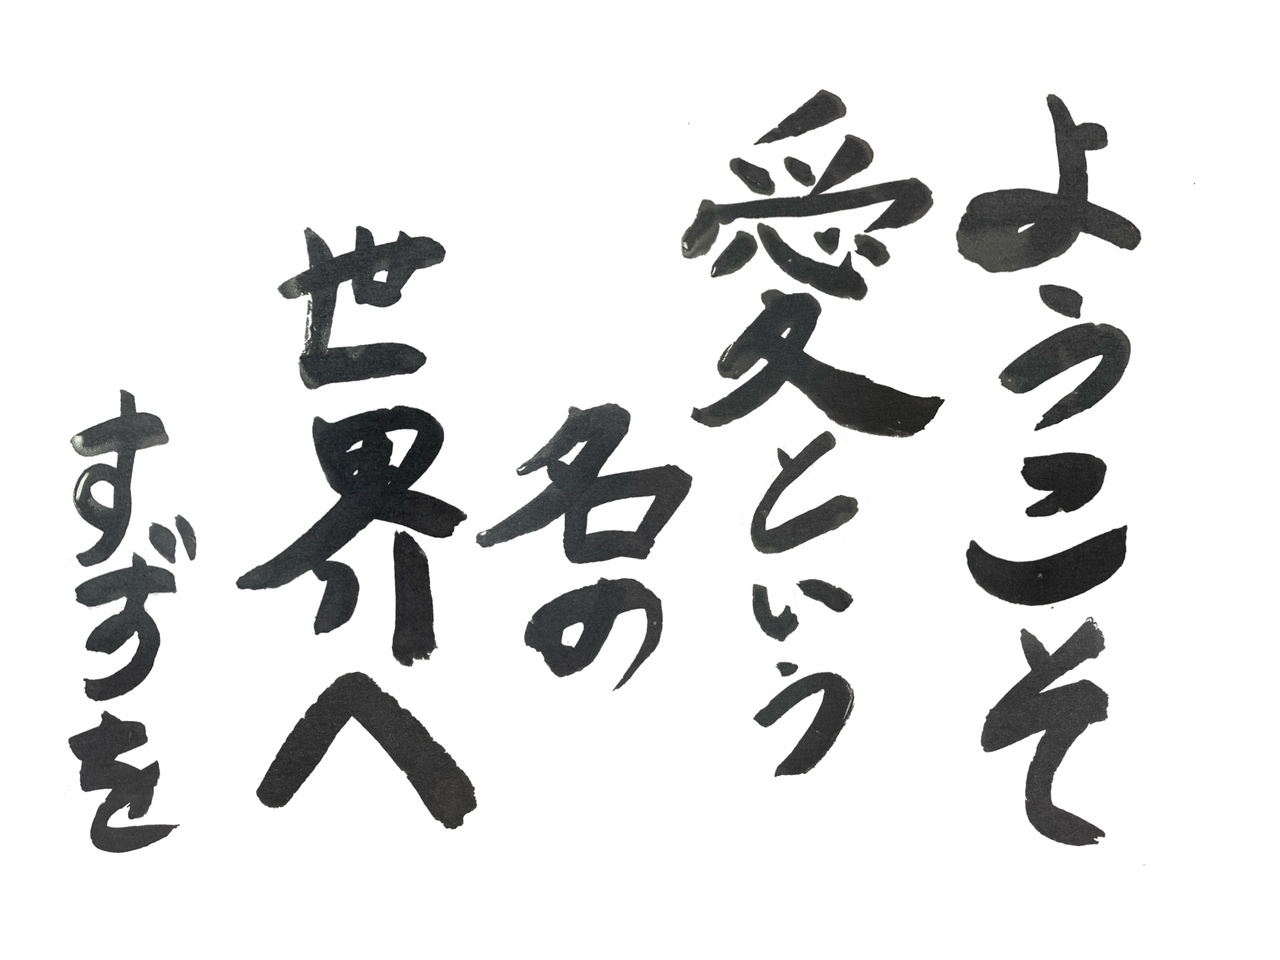 ようこそ
愛という
名の
世界へ
すずを